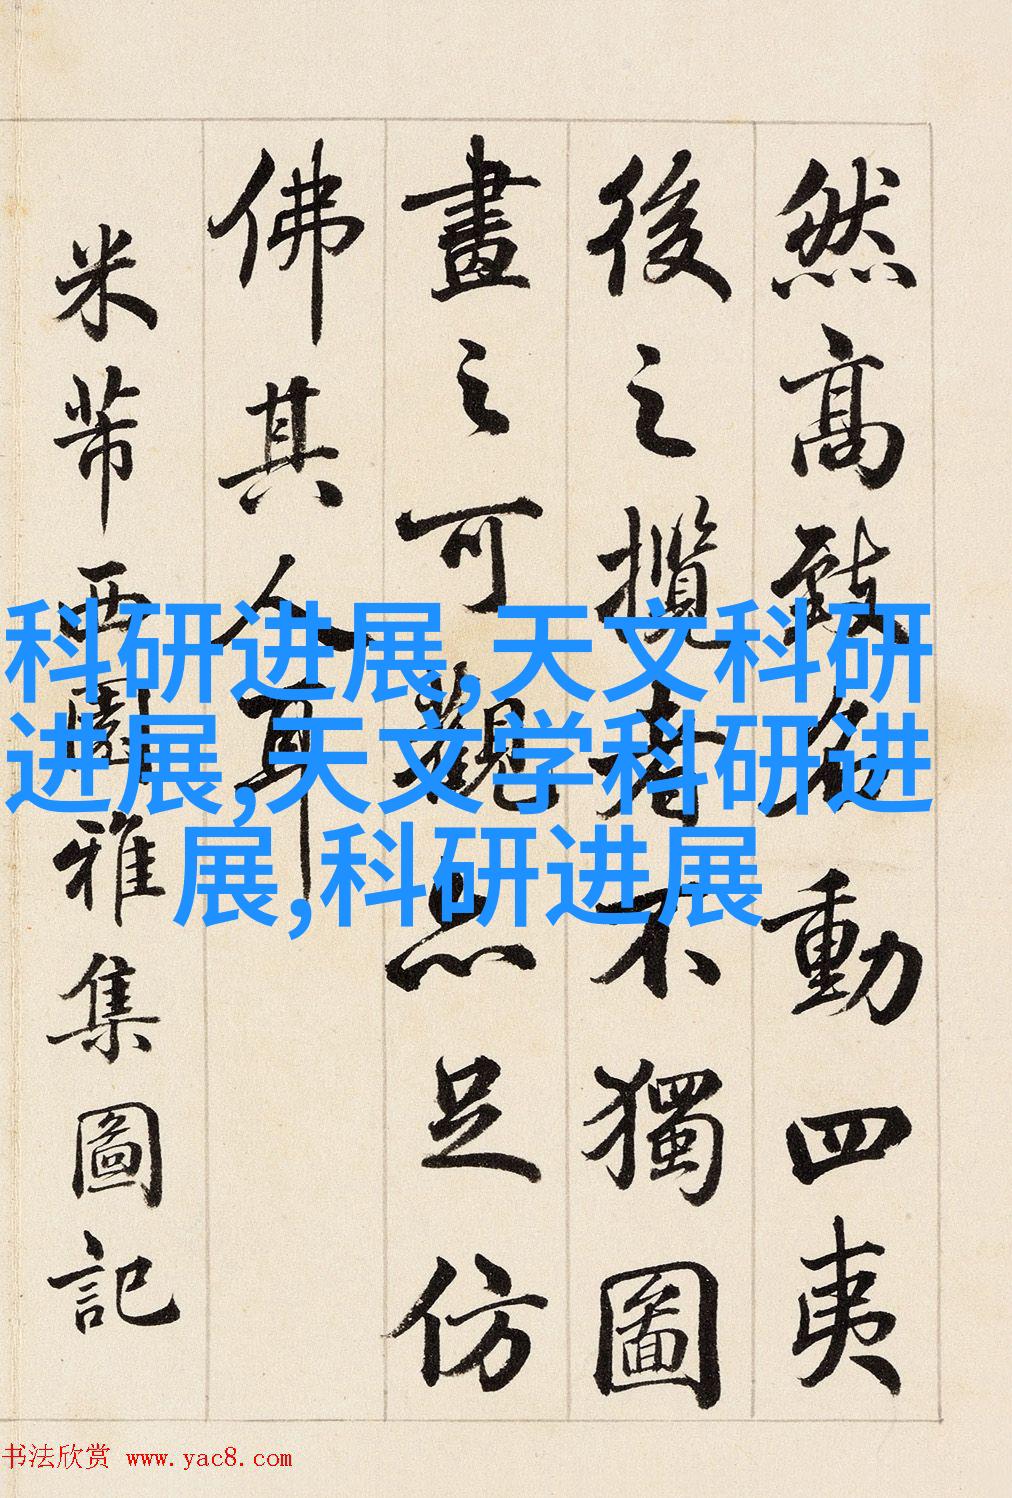 然高致名動四夷
後之攬者不獨圖
畫之可觀亦足仿
佛其人耳
米芾西園雅集圖記
科研进展,天文科研
进展,天文学科研进
展,科研进展
书法欣赏 www.yac8.com